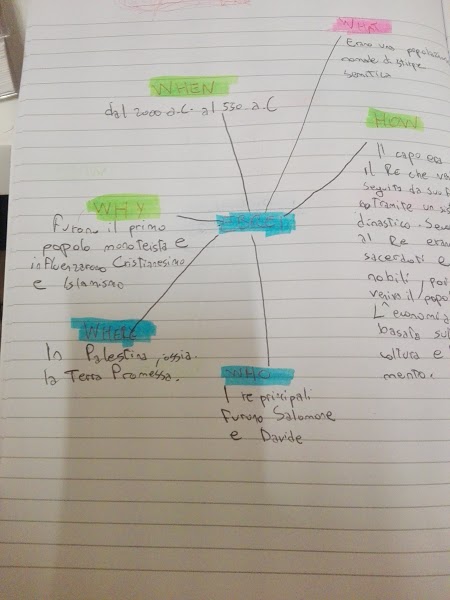 WHAT
Erano una popolazione
nomade di stirpe
semitica
WHEN
dal 2000 a.C. al 550 a.C
HOW
Il capo era
il Re che
seguito da
Tramite un
dinastico.
al Re
sacerdoti e
nobili, poi
veniva il popolo
L'economia
basata
coltura e
mento.
WHY
Furono il primo
popolo monoteista e
influenzarono Cristianesimo
e Islamismo
WHERE
In Palestina, ossia
la Terra Promessa.
WHO
I re principali
furono Salomone
e Davide